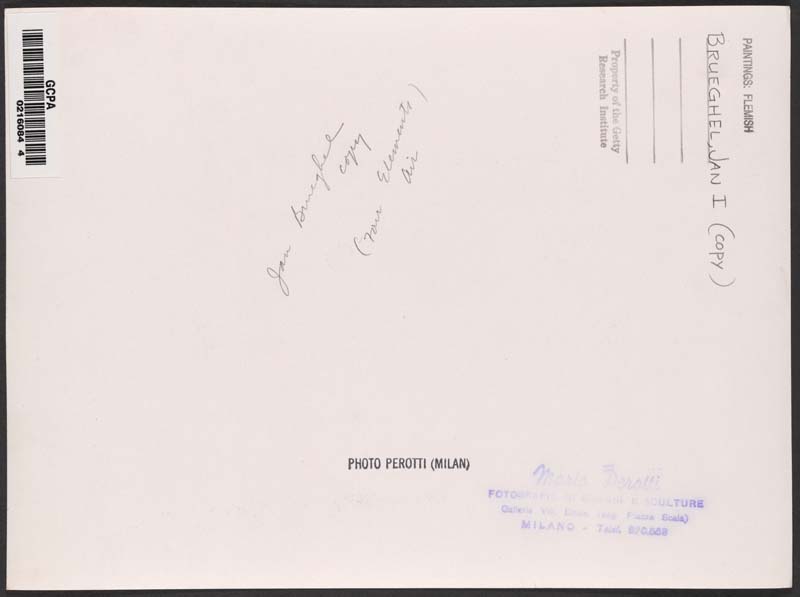 GCPA
0216084 4
PAINTINGS: FLEMISH
BRUEGHEL, JAN I (COPY)
Property of the Getty
Research Institute
Jan Brueghel
copy
(Four Elements)
Air
PHOTO PEROTTI (MILAN)
Mario Perotti
FOTOGRAFIE DI QUADRI E SCULTURE
Galleria Vitt. Piazza Scala)
MILANO - Telef.